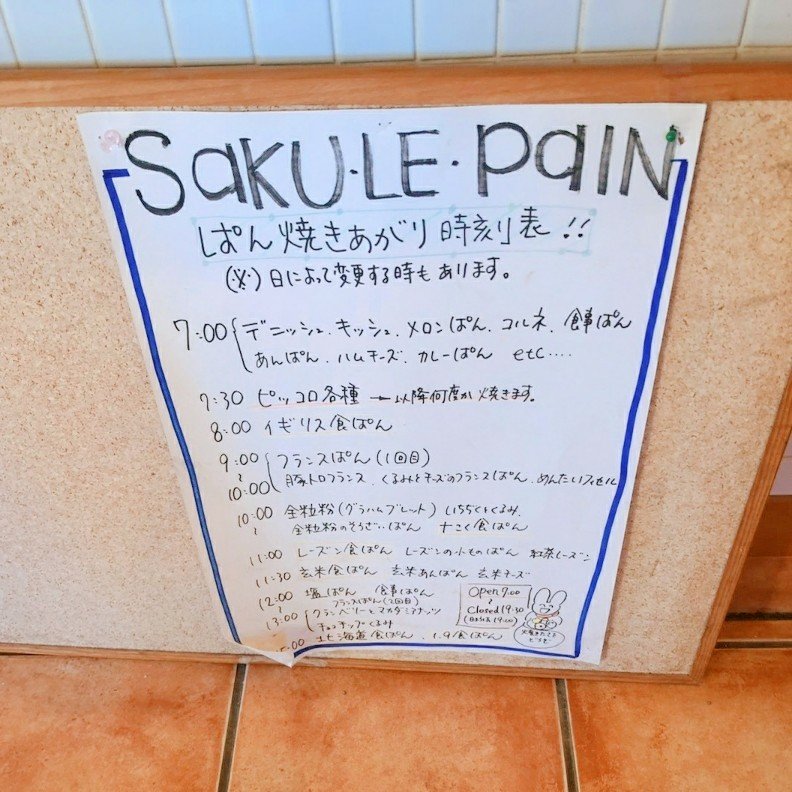 SaKU・LE・PaIN
ぱん焼きあがり時刻表!!
(※)日によって変更する時もあります。
7:00 デニッシュ、キッシュ、メロンぱん、コルネ、食事ぱん
あんぱん、ハムチーズ、カレーぱん etc....
7:30 ピッコロ各種 ← 以降何度か焼きます。
8:00 イギリス食ぱん
9:00 フランスぱん(1回目)
~
10:00 豚トロフランス、くるみとチーズのフランスぱん、めんたいフィセル
10:00 全粒粉(グラハムブレット) いちじくとくるみ、
~ 全粒粉のそうざいぱん 十こく食ぱん
11:00 レーズン食ぱん レーズンの小ものぱん 紅茶レーズン
11:30 玄米食ぱん 玄米あんぱん 玄米チーズ
12:00 塩ぱん 食事ぱん
~ フランスぱん(2回目)
13:00 クランベリーとマカダミアナッツ
チョコチップくるみ
5:00 北海道食ぱん、1.9食ぱん
Open 7:00
~
Closed 19:30